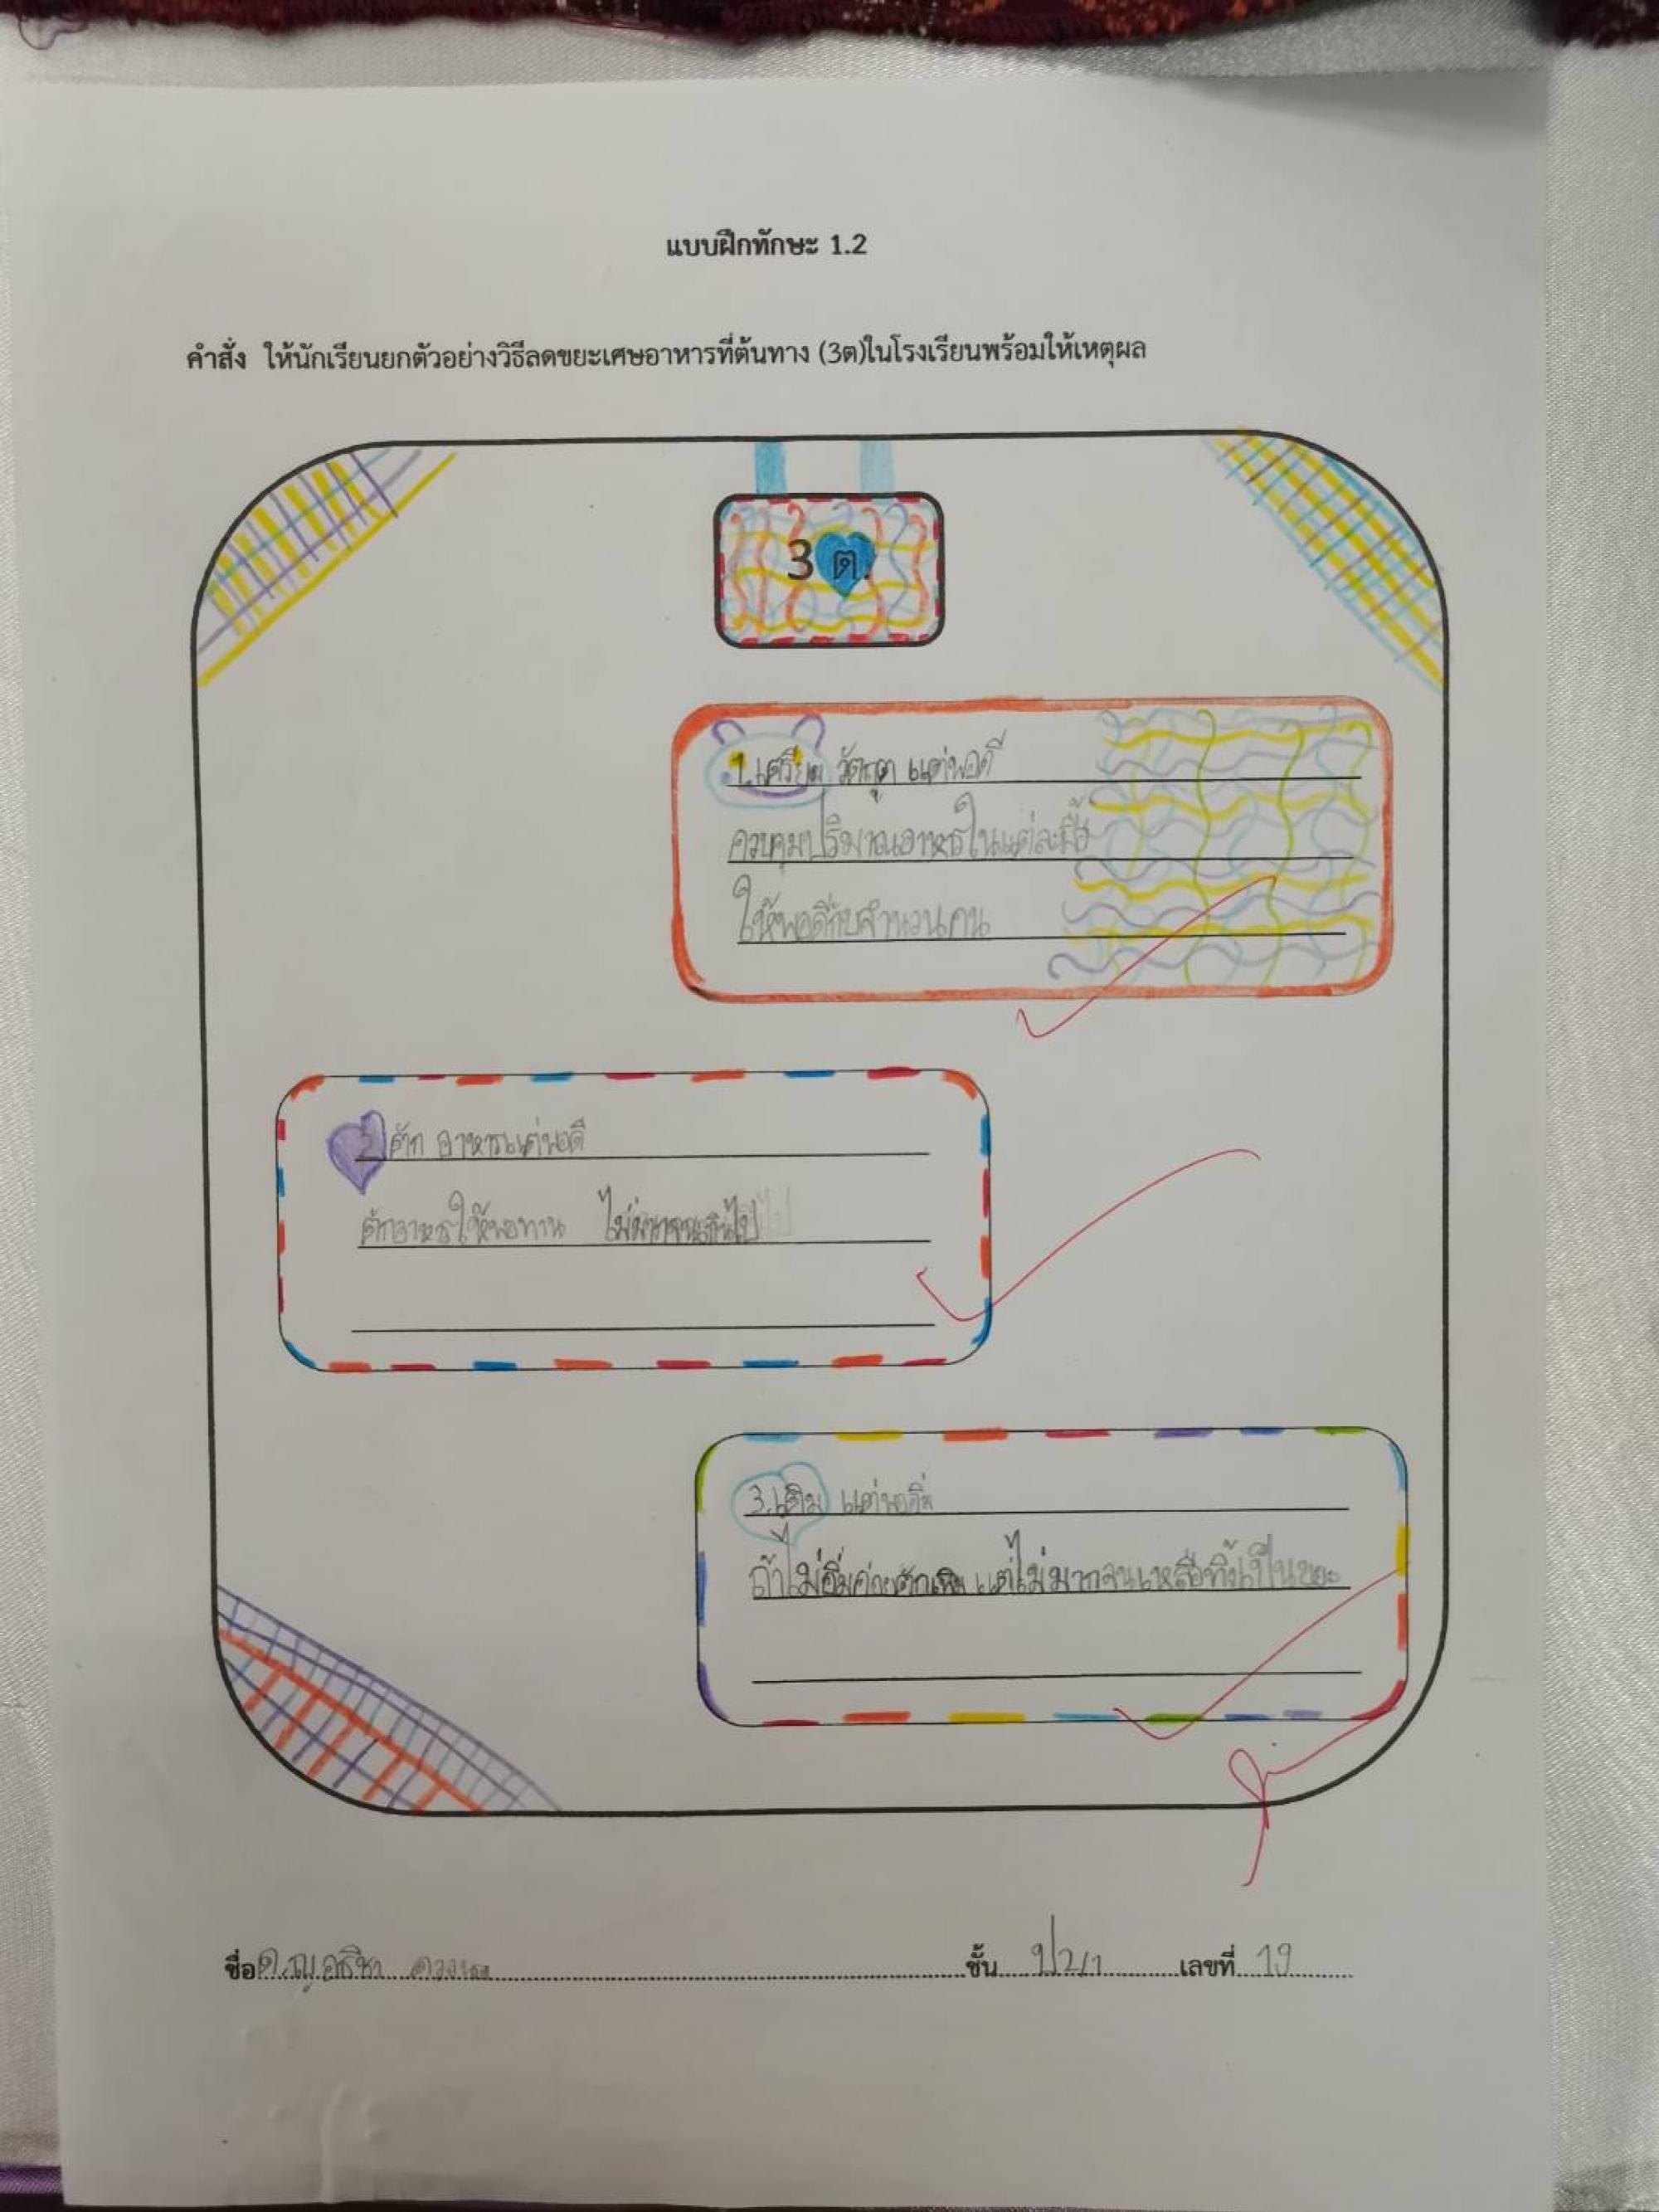 แบบฝึกทักษะ 1.2
คำสั่ง ให้นักเรียนยกตัวอย่างวิธีลดขยะเศษอาหารที่ต้นทาง (3ต)ในโรงเรียนพร้อมให้เหตุผล
3 ต.
1.เตรียม วัตถุดิ แต่พอดี
ควบคุมปริมาณอาหารในแต่ละมื้อ
ให้พอดีกับจำนวนคน
2.ตัก อาหารแต่พอดี
ตักอาหารให้พอทาน ไม่มากจนเกินไป
3.เติม แต่พออิ่ม
ถ้าไม่อิ่มค่อยตักเพิ่ม แต่ไม่มากจนเหลือทิ้งเป็นขยะ
ชื่อ ด.ญ. ชั้น ป2/1 เลขที่ 19